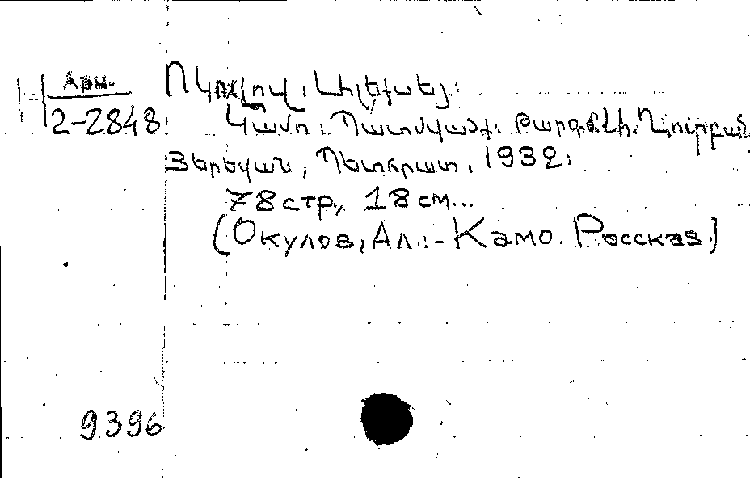 Арм.
2-2848
Ոկուլով, Ալեքսեյ.
Կամո. Պատմվածք. Թարգմ. Ղուրբան
Յերեվան, Պետհրատ, 1932.
78 стр., 18 см...
(Окулов, Ал.:- Камо. Рассказ.)
9396